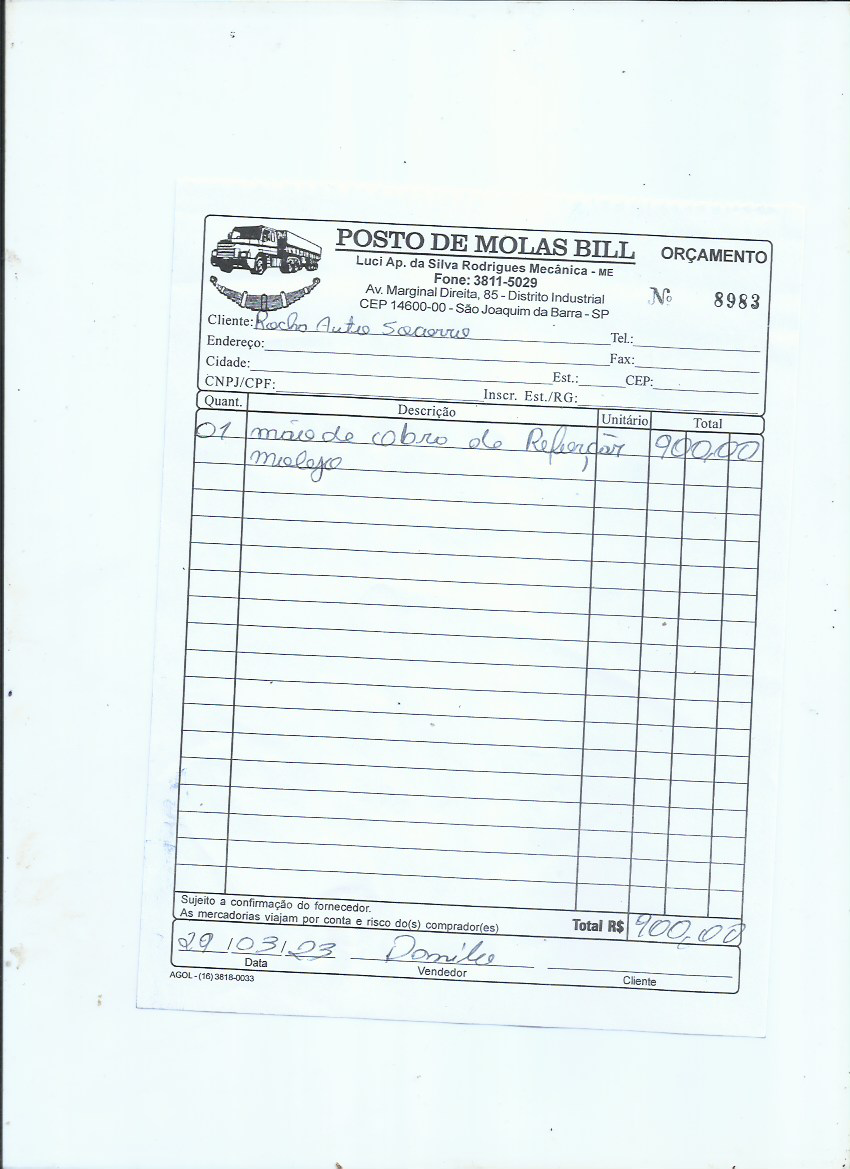 POSTO DE MOLAS BILL
ORÇAMENTO
Luci Ap. da Silva Rodrigues Mecânica - ME
Fone: 3811-5029
Av. Marginal Direita, 85 - Distrito Industrial
CEP 14600-00 - São Joaquim da Barra - SP
Nº 8983
Cliente: Rocho Auto Socorro Tel.:
Endereço: Fax:
Cidade: Est.: CEP:
CNPJ/CPF: Inscr. Est./RG:
Quant. Descrição Unitário Total
01 mão de obra de Reforçar 900,00
molejo
Sujeito a confirmação do fornecedor.
As mercadorias viajam por conta e risco do(s) comprador(es)
Total R$ 900,00
29/03/23 Danilo
Data Vendedor Cliente
AGOL - (16) 3818-0033